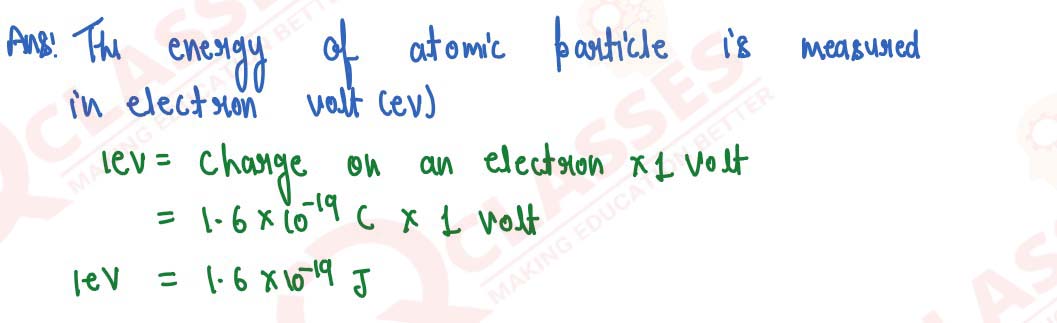 Ans: The energy of atomic particle is measured
in electron volt (ev)
1ev = charge on an electron × 1 volt
= 1.6 × 10⁻¹⁹ C × 1 volt
1ev = 1.6 × 10⁻¹⁹ J
CLASSES
MAKING EDUCATION BETTER